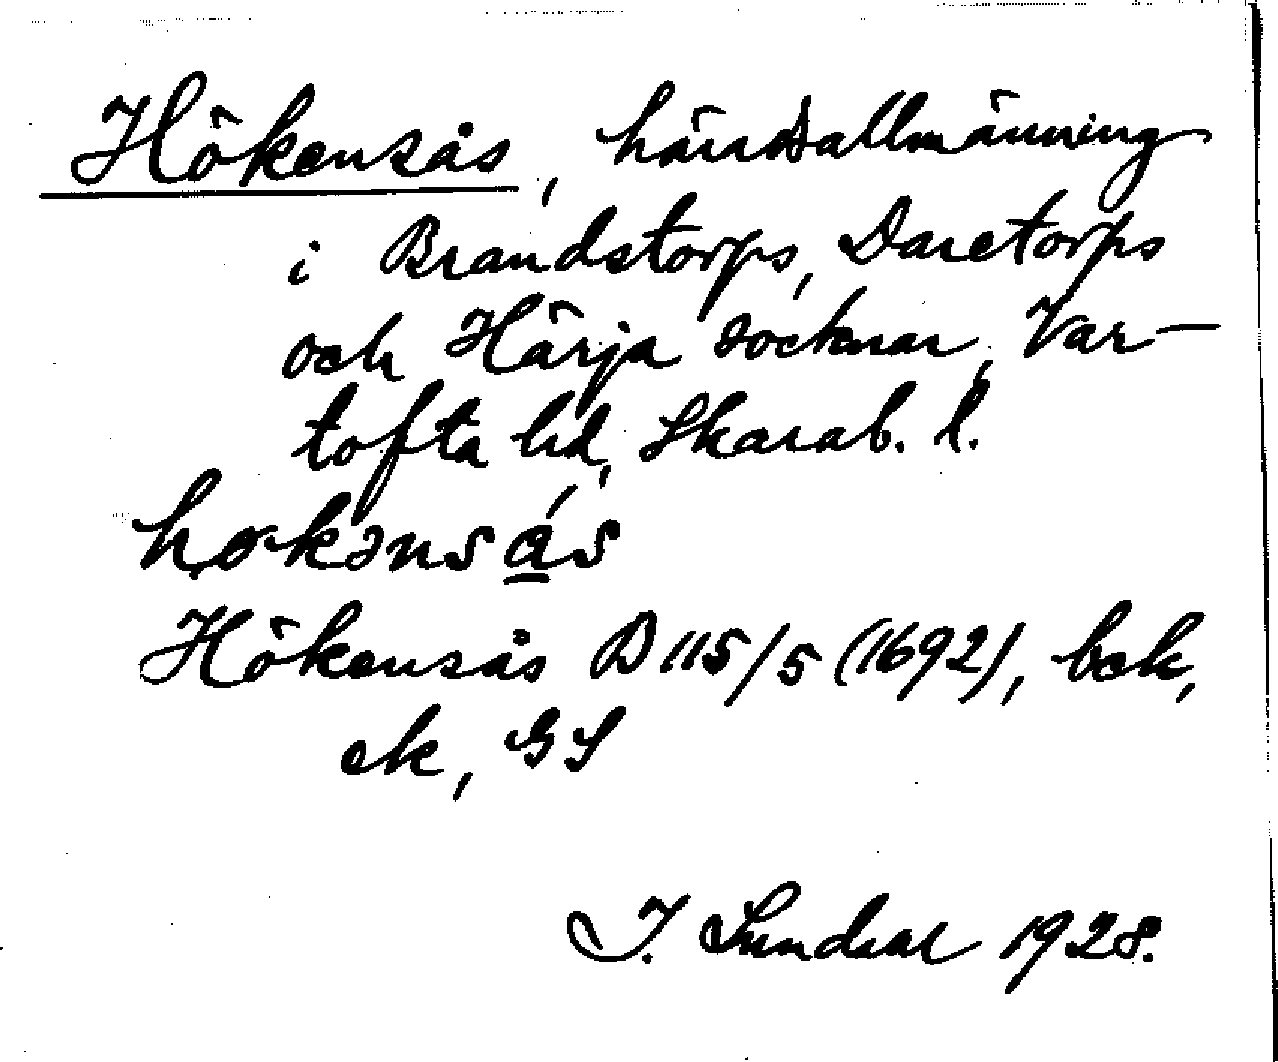 Hökensås, häradsallmänning
i Brandstorps, Daretorps
och Härja socknar, Var-
tofta hd, Skarab. l.
Hökensås D 115/5 (1692), bek,
ek, GS
I. Lundahl 1928.